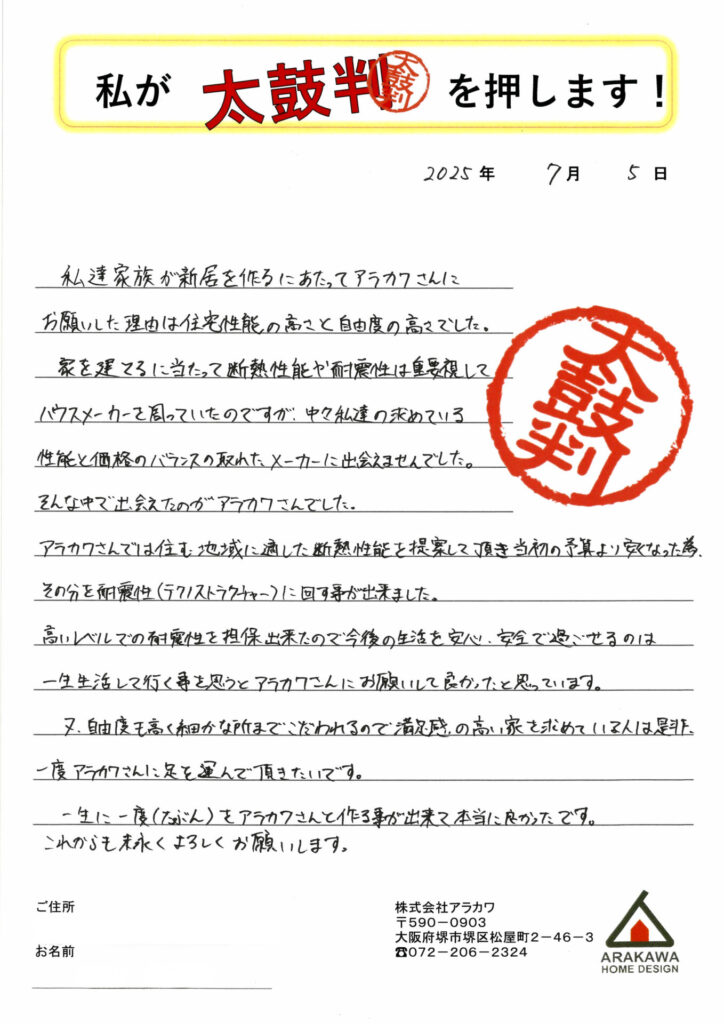 私が 太鼓判 太鼓判 を押します！
2025年 7月 5日
私達家族が新居を作るにあたってアラカワさんに
お願いした理由は住宅性能の高さと自由度の高さでした。
家を建てるに当たって断熱性能や耐震性は重要視して
ハウスメーカーを周っていたのですが、中々私達の求めている
性能と価格のバランスの取れたメーカーに出会えませんでした。
そんな中で出会えたのがアラカワさんでした。
太鼓判
アラカワさんでは住む地域に適した断熱性能を提案して頂き当初の予算より安くなった為、
その分を耐震性(テクノストラクチャー)に回す事が出来ました。
高いレベルでの耐震性を担保出来たので今後の生活を安心、安全で過ごせるのは
一生生活して行く事を思うとアラカワさんにお願いして良かったと思っています。
又、自由度も高く細かな所までこだわれるので満足感の高い家を求めている人は是非、
一度アラカワさんに足を運んで頂きたいです。
一生に一度(たぶん)をアラカワさんと作る事が出来て本当に良かったです。
これからも末永くよろしくお願いします。
ご住所
お名前
株式会社アラカワ
〒590-0903
大阪府堺市堺区松屋町2-46-3
☎072-206-2324
ARAKAWA
HOME DESIGN